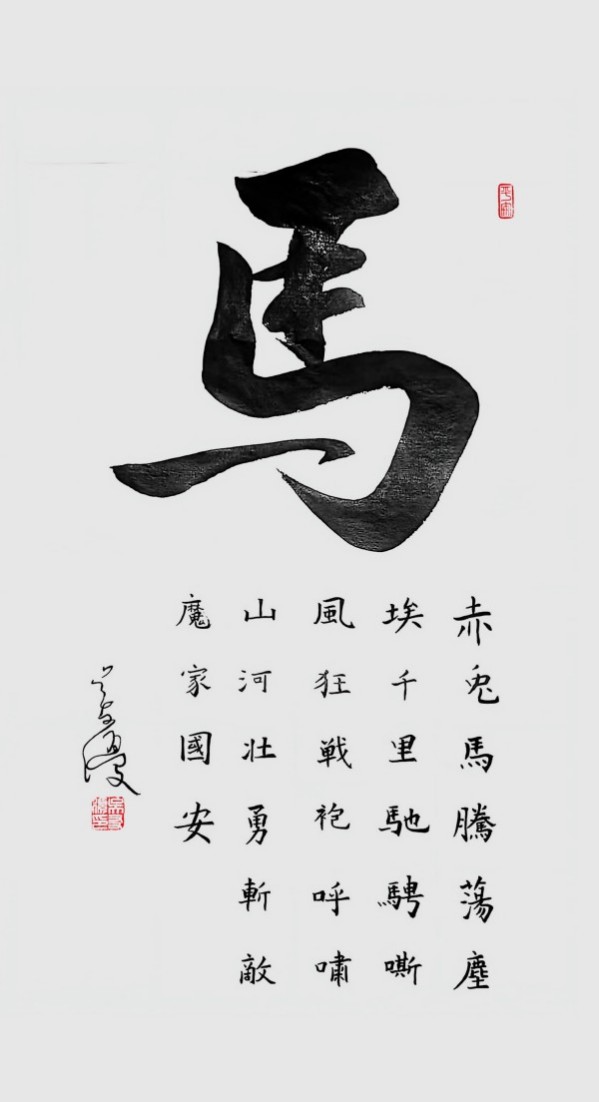 馬
赤兔馬騰蕩塵
埃千里馳騁嘶
風狂戦袍呼嘯
山河壮勇斬敵
魔家國安